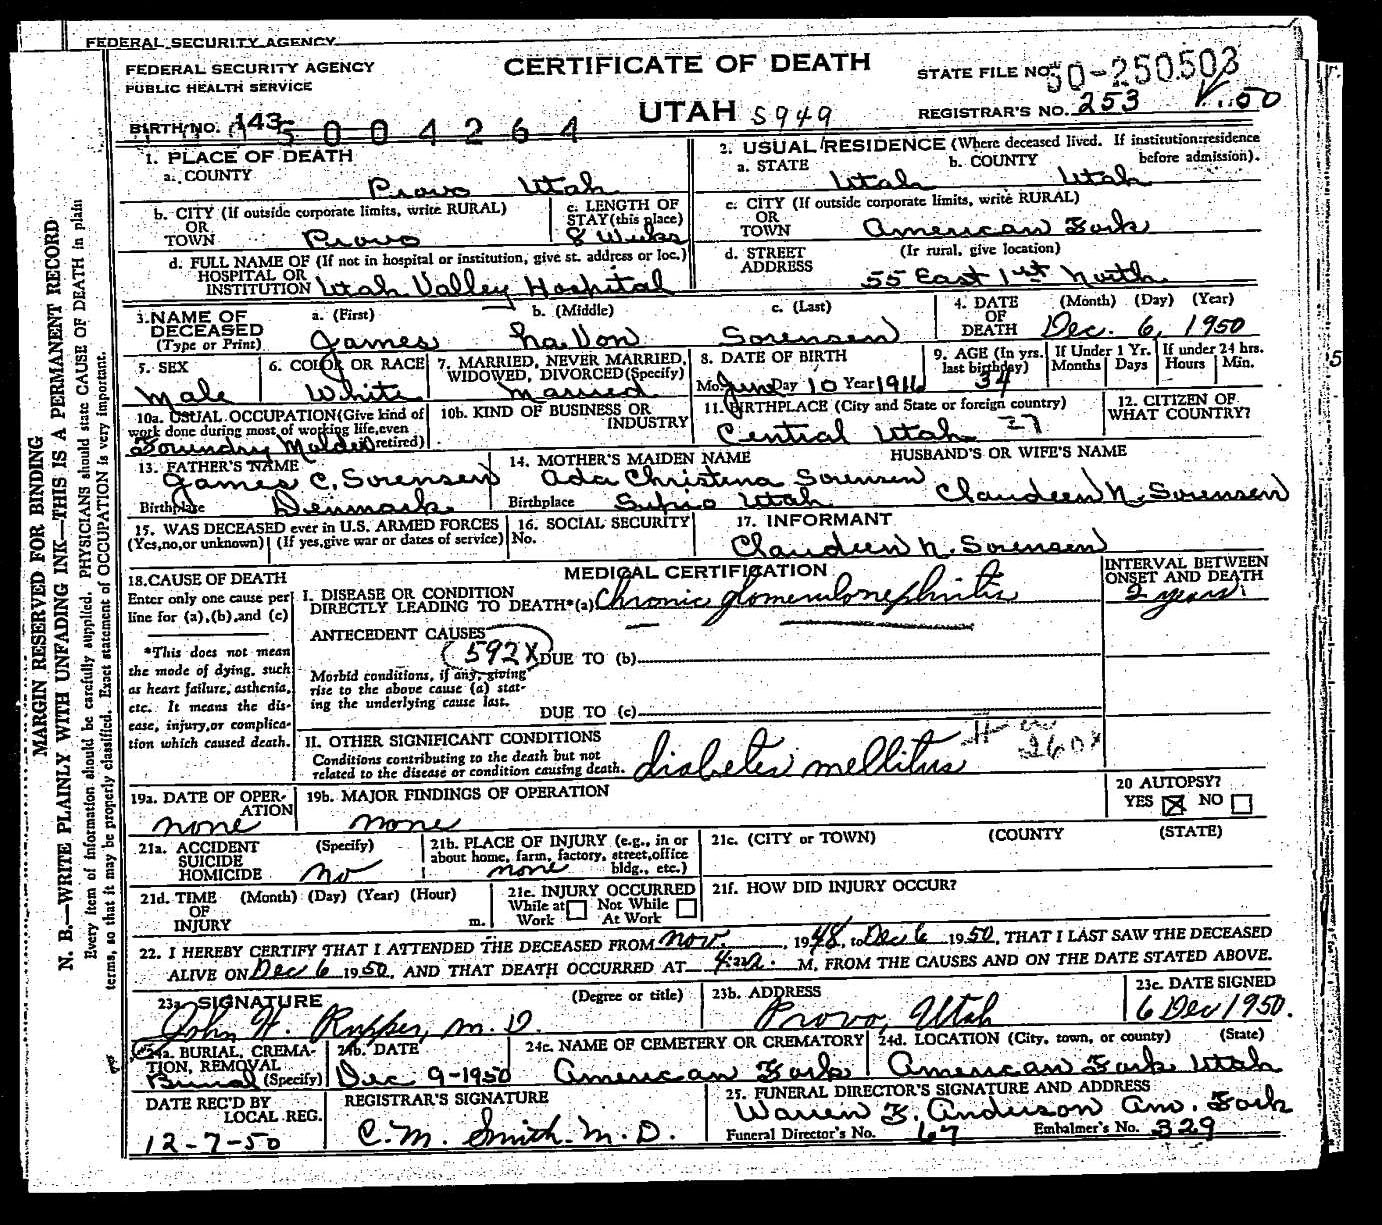 FEDERAL SECURITY AGENCY
FEDERAL SECURITY AGENCY
PUBLIC HEALTH SERVICE
CERTIFICATE OF DEATH
UTAH S949
STATE FILE NO. 50-250503
REGISTRAR'S NO. 253
BIRTH NO. 143 5004264
1. PLACE OF DEATH
a. COUNTY
Provo Utah
b. CITY (If outside corporate limits, write RURAL)
OR
TOWN Provo
c. LENGTH OF
STAY (this place)
8 Weeks
d. FULL NAME OF (If not in hospital or institution, give st. address or loc.)
HOSPITAL OR
INSTITUTION Utah Valley Hospital
2. USUAL RESIDENCE (Where deceased lived. If institution: residence
before admission).
a. STATE b. COUNTY
Utah Utah
c. CITY (If outside corporate limits, write RURAL)
OR
TOWN American Fork
d. STREET (If rural, give location)
ADDRESS
55 East 1st North
3. NAME OF a. (First) b. (Middle) c. (Last)
DECEASED
(Type or Print) James LaVon Sorensen
4. DATE (Month) (Day) (Year)
OF
DEATH Dec. 6, 1950
5. SEX
Male
6. COLOR OR RACE
White
7. MARRIED, NEVER MARRIED,
WIDOWED, DIVORCED (Specify)
Married
8. DATE OF BIRTH
Mo. June Day 10 Year 1916
9. AGE (In yrs.
last birthday)
34
If Under 1 Yr.
Months Days
If under 24 hrs.
Hours Min.
10a. USUAL OCCUPATION (Give kind of
work done during most of working life, even
Foundry Molder retired)
10b. KIND OF BUSINESS OR
INDUSTRY
11. BIRTHPLACE (City and State or foreign country)
Central Utah
12. CITIZEN OF
WHAT COUNTRY?
13. FATHER'S NAME
James C. Sorensen
Birthplace Denmark
14. MOTHER'S MAIDEN NAME
Ada Christena Sorensen
Birthplace Utah
HUSBAND'S OR WIFE'S NAME
Claudeen N. Sorensen
15. WAS DECEASED ever in U.S. ARMED FORCES
(Yes, no, or unknown) (If yes, give war or dates of service)
16. SOCIAL SECURITY
No.
17. INFORMANT
Claudeen N. Sorensen
18. CAUSE OF DEATH
Enter only one cause per
line for (a), (b), and (c)
*This does not mean
the mode of dying, such
as heart failure, asthenia,
etc. It means the dis-
ease, injury, or complica-
tion which caused death.
MEDICAL CERTIFICATION
INTERVAL BETWEEN
ONSET AND DEATH
I. DISEASE OR CONDITION
DIRECTLY LEADING TO DEATH*(a) Chronic glomerulonephritis
2 years
ANTECEDENT CAUSES
592X DUE TO (b)
Morbid conditions, if any, giving
rise to the above cause (a) stat-
ing the underlying cause last.
DUE TO (c)
II. OTHER SIGNIFICANT CONDITIONS
Conditions contributing to the death but not
related to the disease or condition causing death.
diabetes mellitus
260X
19a. DATE OF OPER-
ATION
none
19b. MAJOR FINDINGS OF OPERATION
none
20 AUTOPSY?
YES ☒ NO ☐
21a. ACCIDENT (Specify)
SUICIDE
HOMICIDE no
21b. PLACE OF INJURY (e.g., in or
about home, farm, factory, street, office
bldg., etc.)
none
21c. (CITY or TOWN) (COUNTY (STATE)
21d. TIME (Month) (Day) (Year) (Hour)
OF
INJURY m.
21e. INJURY OCCURRED
While at Work ☐ Not While At Work ☐
21f. HOW DID INJURY OCCUR?
22. I HEREBY CERTIFY THAT I ATTENDED THE DECEASED FROM Nov., 1948, to Dec 6 1950, THAT I LAST SAW THE DECEASED
ALIVE ON Dec 6 1950, AND THAT DEATH OCCURRED AT M, FROM THE CAUSES AND ON THE DATE STATED ABOVE.
23a. SIGNATURE (Degree or title)
John H. Rupper, M.D.
23b. ADDRESS
Provo, Utah
23c. DATE SIGNED
6 Dec 1950.
24a. BURIAL, CREMA-
TION, REMOVAL
Burial (Specify)
24b. DATE
Dec 9-1950
24c. NAME OF CEMETERY OR CREMATORY
American Fork
24d. LOCATION (City, town, or county) (State)
American Fork Utah
DATE REC'D BY
LOCAL REG.
12-7-50
REGISTRAR'S SIGNATURE
C. M. Smith. M.D.
25. FUNERAL DIRECTOR'S SIGNATURE AND ADDRESS
Warren F. Anderson Am. Fork
Funeral Director's No. 67 Embalmer's No. 329
MARGIN RESERVED FOR BINDING
N. B.—WRITE PLAINLY WITH UNFADING INK—THIS IS A PERMANENT RECORD
Every item of information should be carefully supplied. PHYSICIANS should state CAUSE OF DEATH in plain
terms, so that it may be properly classified. Exact statement of OCCUPATION is very important.